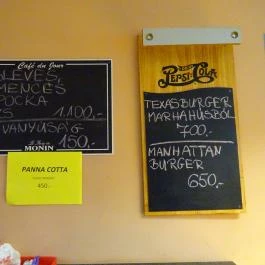 Café du Jour
LEVES,
MENCÉS
PUCKA
ES 1.100,-
VANYÚSÁG
150,-
MONIN
PANNA COTTA
450.-
PEPSI-COLA
TEXASBURGER
MARHAHÚSBÓL
700,-
MANHATTAN
BURGER
650,-